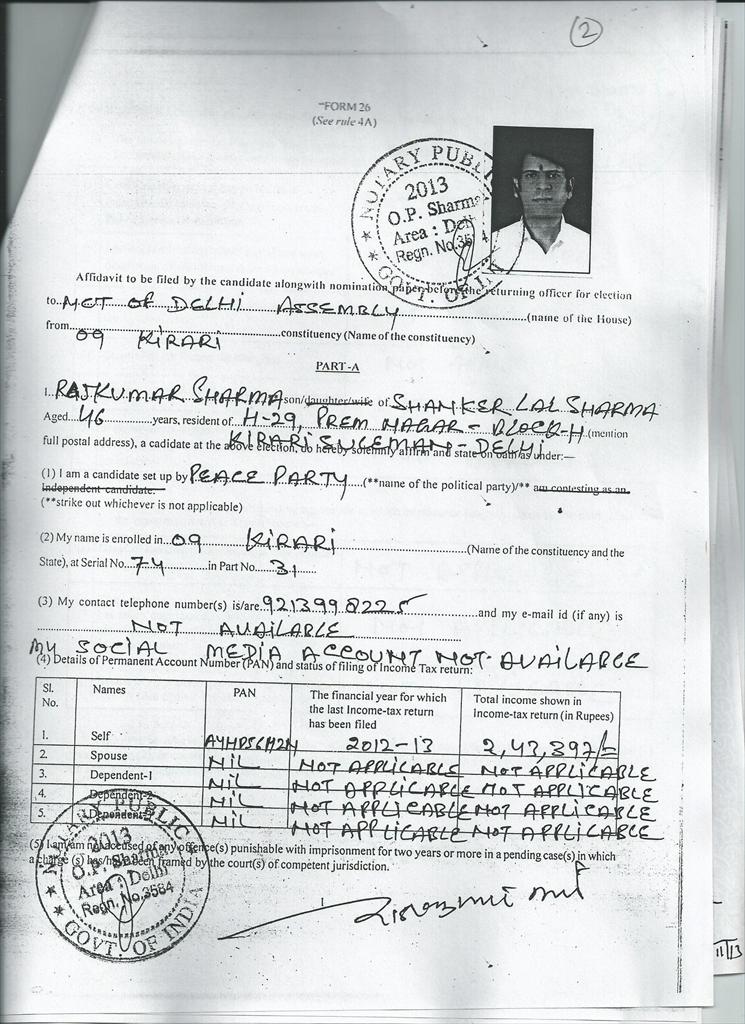 2
"FORM 26
(See rule 4A)
NOTARY PUBLIC
2013
O.P. Sharma
Area : Delhi
Regn. No. 3584
GOVT. OF INDIA
Affidavit to be filed by the candidate alongwith nomination paper before the returning officer for election
to. NCT OF DELHI ASSEMBLY (name of the House)
from 09 KIRARI constituency (Name of the constituency)
PART-A
I.. RAJKUMAR SHARMA son/daughter/wife of SHANKER LAL SHARMA
Aged 46 years, resident of H-29, PREM NAGAR - BLOCK-H (mention
KIRARI SULEMAN - DELHI
full postal address), a cadidate at the above election, do hereby solemnly affirm and state on oath/as under:—
(1) I am a candidate set up by PEACE PARTY (**name of the political party)/** am contesting as an
Independent candidate.
(**strike out whichever is not applicable)
(2) My name is enrolled in 09 KIRARI (Name of the constituency and the
State), at Serial No. 74 in Part No. 31
(3) My contact telephone number(s) is/are 9213998225 and my e-mail id (if any) is
NOT AVAILABLE
MY SOCIAL MEDIA ACCOUNT NOT AVAILABLE
(4) Details of Permanent Account Number (PAN) and status of filing of Income Tax return:
Sl. No. Names PAN The financial year for which the last Income-tax return has been filed Total income shown in Income-tax return (in Rupees)
1. Self 2012-13 2,43,397/=
2. Spouse NIL NOT APPLICABLE NOT APPLICABLE
3. Dependent-1 NIL NOT APPLICABLE NOT APPLICABLE
4. Dependent-2 NIL NOT APPLICABLE NOT APPLICABLE
5. Dependent-3 NIL NOT APPLICABLE NOT APPLICABLE
(5) I am/am not accused of any offence(s) punishable with imprisonment for two years or more in a pending case(s) in which
a charge (s) has/have been framed by the court(s) of competent jurisdiction.
NOTARY PUBLIC
2013
O.P. Sharma
Area : Delhi
Regn. No. 3584
GOVT. OF INDIA
11/13